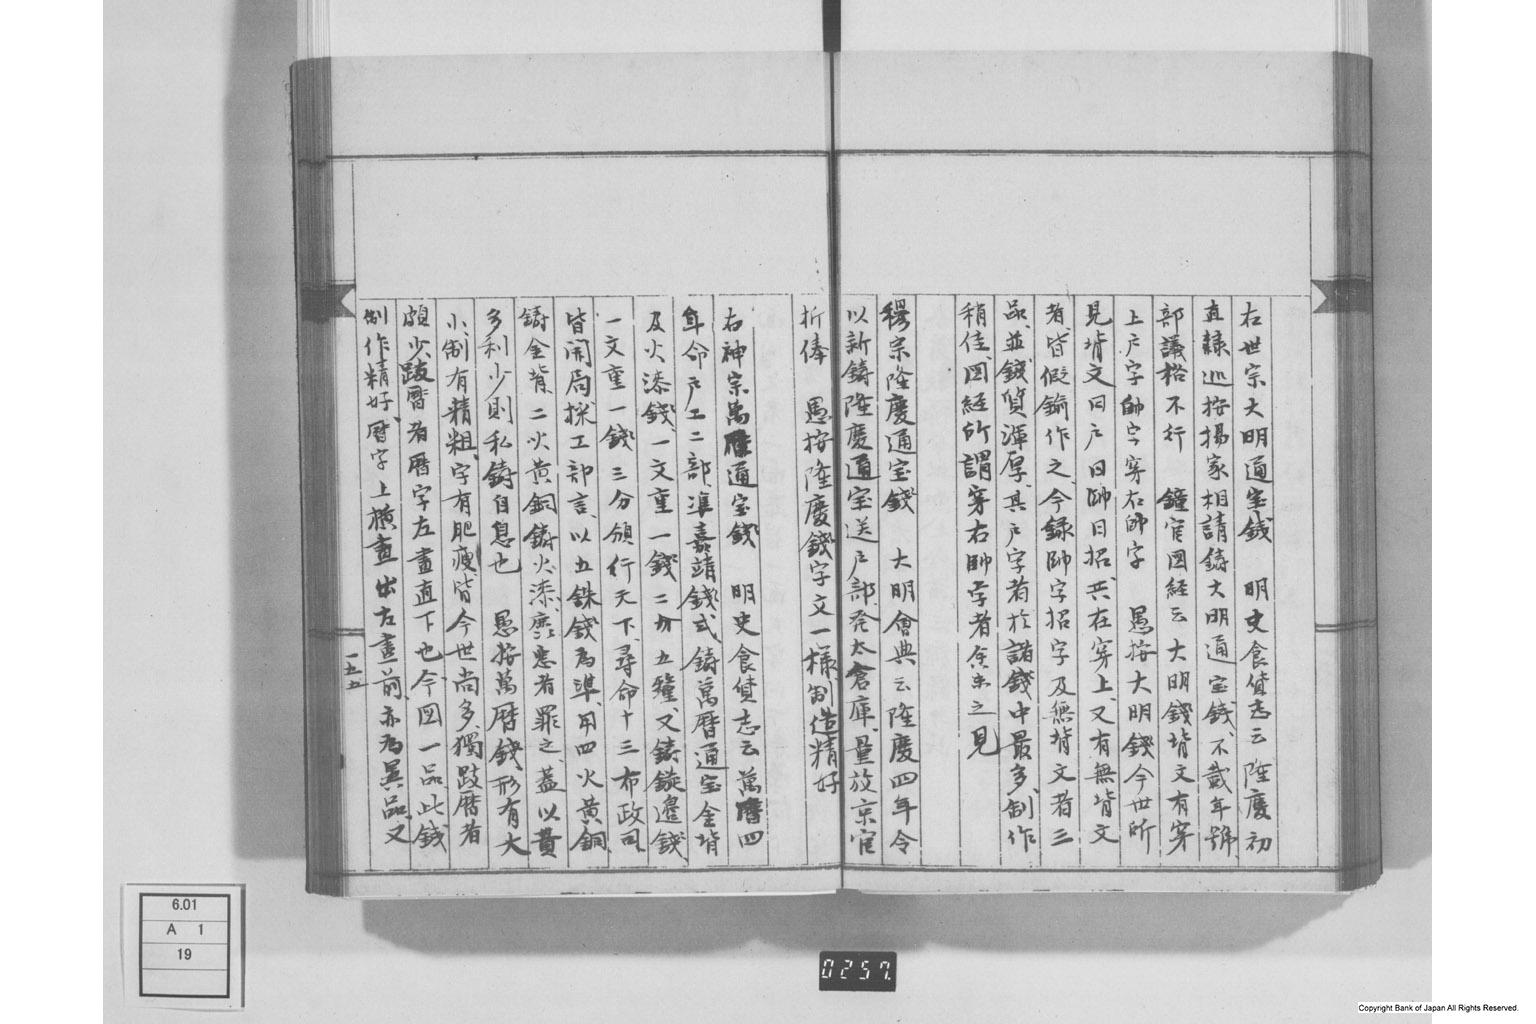 右世宗大明通宝銭　明史食貨志云隆慶初
直隷巡按楊家相請鋳大明通宝銭、不載年號
部議格不行　鐘官図経云大明錢背文有穿
上戸字帥字穿右帥字　愚按大明錢今世所
見背文曰戸曰帥曰招共在穿上又有無背文
者皆假鋳作之今録帥字招字及無背文者三
品並錢貨渾厚其戸字者於諸錢中最多制作
稍佳図経所謂穿右帥字者余未之見
穆宗隆慶通宝錢　大明會典云隆慶四年令
以新鋳隆慶通宝送戸部発太倉庫量放京官
折俸　愚按隆慶錢字文一様制造精好
右神宗萬曆通宝錢　明史食貨志云萬曆四
年命戸工二部準嘉靖錢式鋳萬曆通宝金背
及火漆錢一文重一錢二分五釐又鋳鏇邊錢
一文重一錢三分頒行天下尋命十三布政司
皆開局採工部言以五銖錢為準用四火黄銅
鋳金背二火黄銅鋳火漆麄悪者罪之蓋以費
多利少則私鋳自息也　愚按萬暦錢形有大
小制有精粗字有肥瘦皆今世尚多獨跂暦者
頗少跂暦者暦字左畫直下也今図一品此錢
制作精好暦字上横畫出左畫前亦為異品又
一五五
6.01
A 1
19
0257
Copyright Bank of Japan All Rights Reserved.